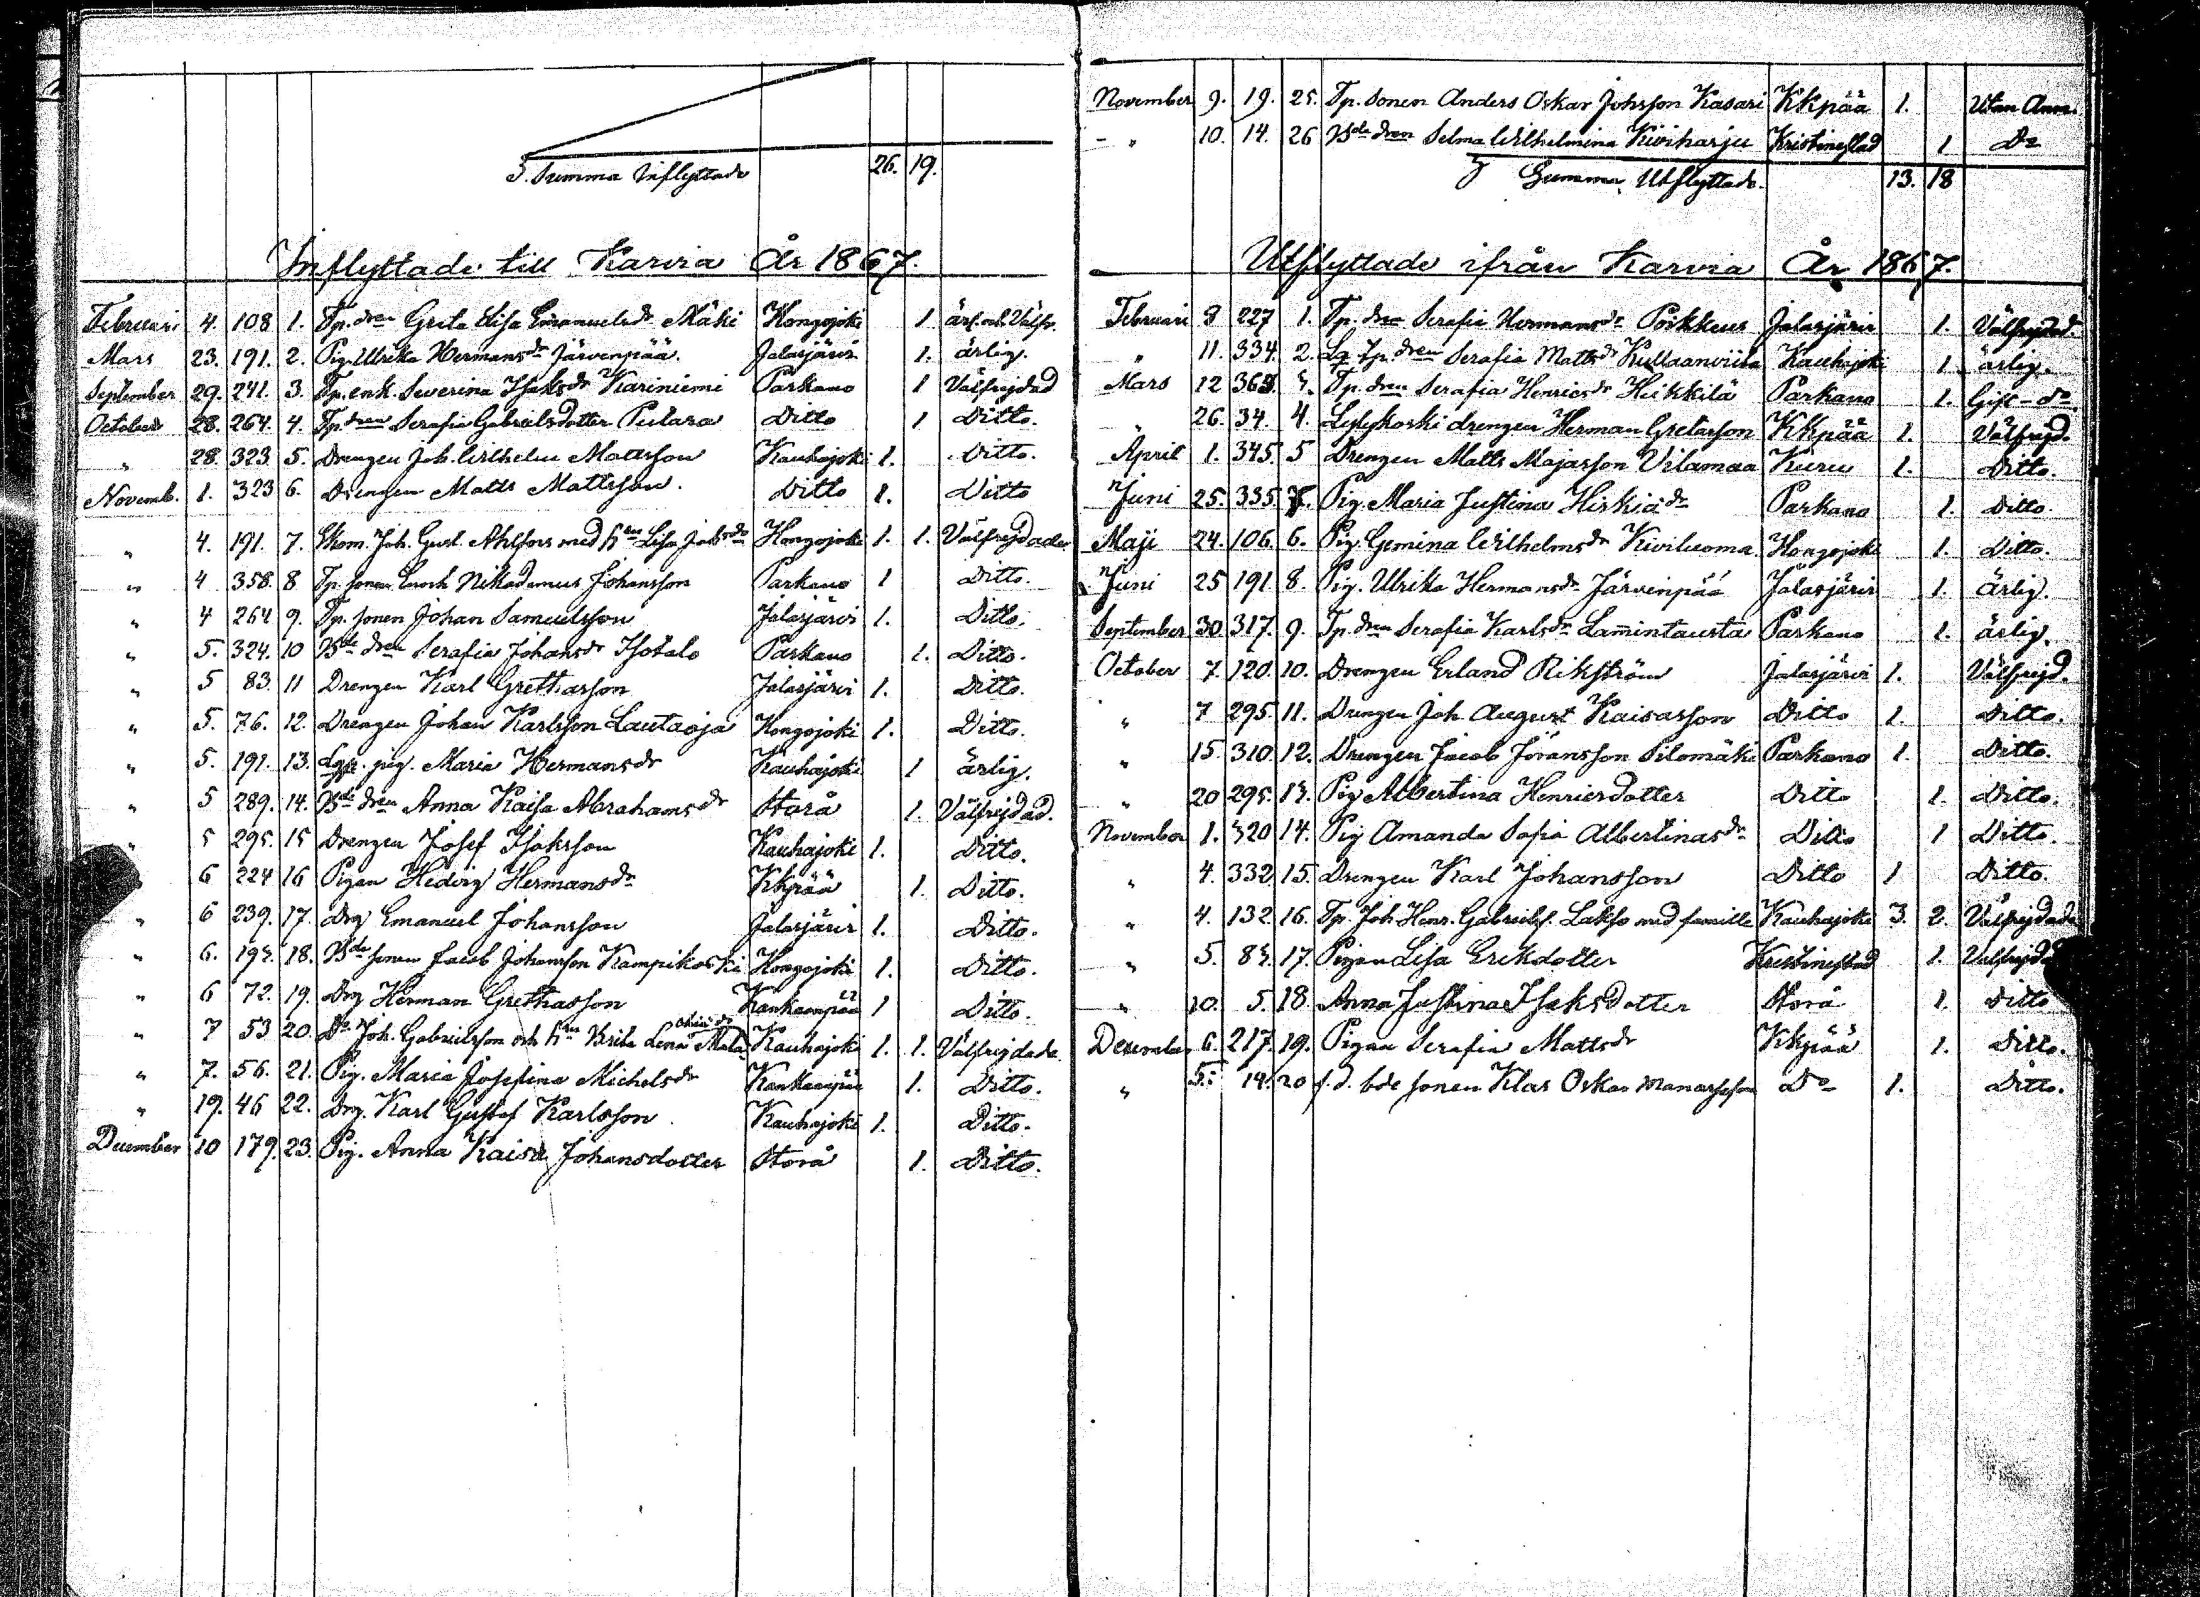 S. Summa Inflyttade 26. 19.
Inflyttade till Karvia År 1867.
Februari 4. 108 1. Tp. dren Greta Lisa Emanuelsdr Mäki Hongojoki 1 ärl. och Välfr.
Mars 23. 191. 2. Pig. Ulrika Hermansdr Järvenpää. Jalasjärvi 1. ärlig.
September 29. 241. 3. Tp. enk. Severina Isaksdr Kariniemi Parkano 1 Välfrejdad
October 28. 264. 4. Tp. dren Serafia Gabrielsdotter Ditto 1 Ditto.
" 28. 323. 5. Drengen Joh. Wilhelm Mattsson Kauhajoki 1. Ditto.
Novemb. 1. 323 6. Drengen Matts Mattsson. Ditto 1. Ditto
" 4. 191. 7. Joh. Gust. Ahlfors med hu Lisa Jakobsdr Hongojoki 1. 1. Välfrejdade
" 4 358. 8 Tp. sonen Enoch Nikademus Johansson Parkano 1 Ditto.
" 4 264 9. Tp. sonen Johan Samuelsson Jalasjärvi 1. Ditto.
" 5. 324. 10 Bde dren Serafia Johansdr Isotalo Parkano 1. Ditto.
" 5 83. 11 Drengen Karl Grethasson Jalasjärvi 1. Ditto.
" 5. 76. 12. Drengen Johan Karlsson Lautaoja Hongojoki 1. Ditto.
" 5. 191. 13. pig. Maria Hermansdr Kauhajoki 1 ärlig.
" 5 289. 14. Bde dren Anna Kaisa Abrahamsdr Storå 1. Välfrejdad.
" 5 295. 15 Drengen Josef Isaksson Kauhajoki 1. Ditto.
" 6 224 16 Pigan Hedvig Hermansdr Kkpää 1. Ditto.
" 6 239. 17. Drg Emanuel Johansson Jalasjärvi 1. Ditto.
" 6. 193. 18. Bde sonen Jacob Johansson Kampikoski Hongojoki 1. Ditto.
" 6 72. 19. Drg Herman Grethasson Kankaanpää 1 Ditto.
" 7 53 20. Do Joh. Gabrielsson och hu Brita Lena Kauhajoki 1. 1. Välfrejdade
" 7. 56. 21. Pig. Maria Josefina Michelsdr Kankaanpää 1. Ditto.
" 19. 46 22. Drg. Karl Gustaf Karlsson Kauhajoki 1. Ditto.
December 10 179. 23. Pig. Anna Kaisa Johansdotter Storå 1. Ditto.
November 9. 19. 25. Tp. sonen Anders Oskar Johsson Kasari Kkpää 1. Utan Anm.
" 10. 14. 26 Bde dren Selma Wilhelmina Kiviharju Kristinestad 1. Do
Summa Utflyttade. 13. 18
Utflyttade ifrån Karvia År 1867.
Februari 8 227 1. Tp. dren Serafia Hermansdr Poikkeus Jalasjärvi 1. Välfrejdad.
" 11. 334. 2. Lg. Tp. dren Serafia Mattsdr Kullaanviita Kauhajoki 1. ärlig.
Mars 12 368. 3. Tp. dren Serafia Henricsdr Heikkilä Parkano 1. Gift - do
" 26. 34. 4. Lylykoski drengen Herman Gretasson Kkpää 1. Välfrejd.
April 1. 345. 5 Drengen Matts Majasson Vilamaa Kuru 1. Ditto.
Juni 25. 335. 7. Pig. Maria Justina Hiskiadr Parkano 1. Ditto.
Maji 24. 106. 6. Pig. Gemina Wilhelmsdr Kiviluoma Hongojoki 1. Ditto.
Juni 25 191. 8. Pig. Ulrika Hermansdr Järvenpää Jalasjärvi 1. ärlig.
September 30 317. 9. Tp. dren Serafia Karlsdr Lamintausta Parkano 1. ärlig.
October 7. 120. 10. Drengen Erland Rikström Jalasjärvi 1. Välfrejd.
" 7 295. 11. Drengen Joh. August Kaisasson Ditto 1. Ditto.
" 15. 310. 12. Drengen Jacob Göransson Pilomäki Parkano 1. Ditto.
" 20 295. 13. Pig Albertina Henricsdotter Ditto 1. Ditto.
November 1. 320 14. Pig Amanda Sofia Albertinasdr Ditto 1 Ditto.
" 4. 332 15. Drengen Karl Johansson Ditto 1 Ditto.
" 4. 132. 16. Tp. Joh. Henr. Gabrielss. Lakso med familie Kauhajoki 3. 2. Välfrejdade
" 5. 83. 17. Pigan Lisa Eriksdotter Kristinestad 1. Välfrejd
" 10. 5. 18. Anna Justina Isaksdotter Storå 1. Ditto
December 6. 217. 19. Pigan Serafia Mattsdr Kkpää 1. Ditto.
" 5. 14. 20 f. d. bde sonen Klas Oskar Manassesson Do 1. Ditto.